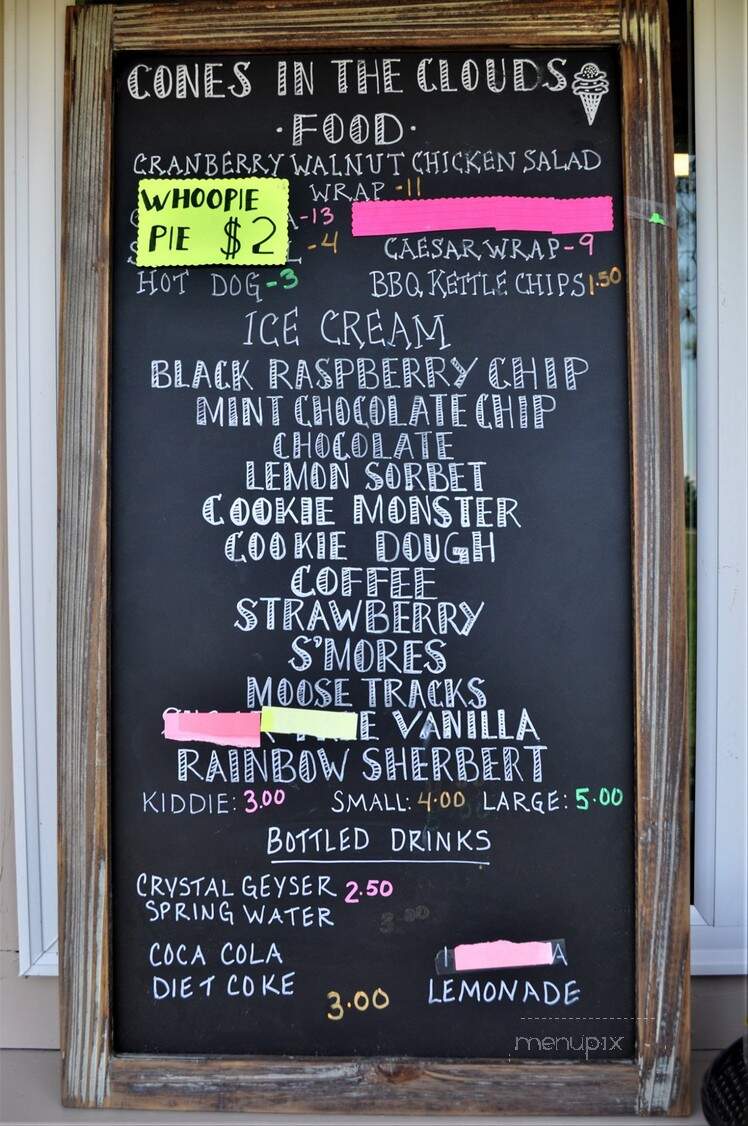 CONES IN THE CLOUDS
·FOOD·
CRANBERRY WALNUT CHICKEN SALAD
WRAP -11
WHOOPIE
PIE $2
A -13
L -4
CAESAR WRAP -9
HOT DOG -3
BBQ KETTLE CHIPS 1.50
ICE CREAM
BLACK RASPBERRY CHIP
MINT CHOCOLATE CHIP
CHOCOLATE
LEMON SORBET
COOKIE MONSTER
COOKIE DOUGH
COFFEE
STRAWBERRY
S'MORES
MOOSE TRACKS
VANILLA
RAINBOW SHERBERT
KIDDIE: 3.00 SMALL: 4.00 LARGE: 5.00
BOTTLED DRINKS
CRYSTAL GEYSER 2.50
SPRING WATER
COCA COLA
DIET COKE
3.00
LEMONADE
menupix